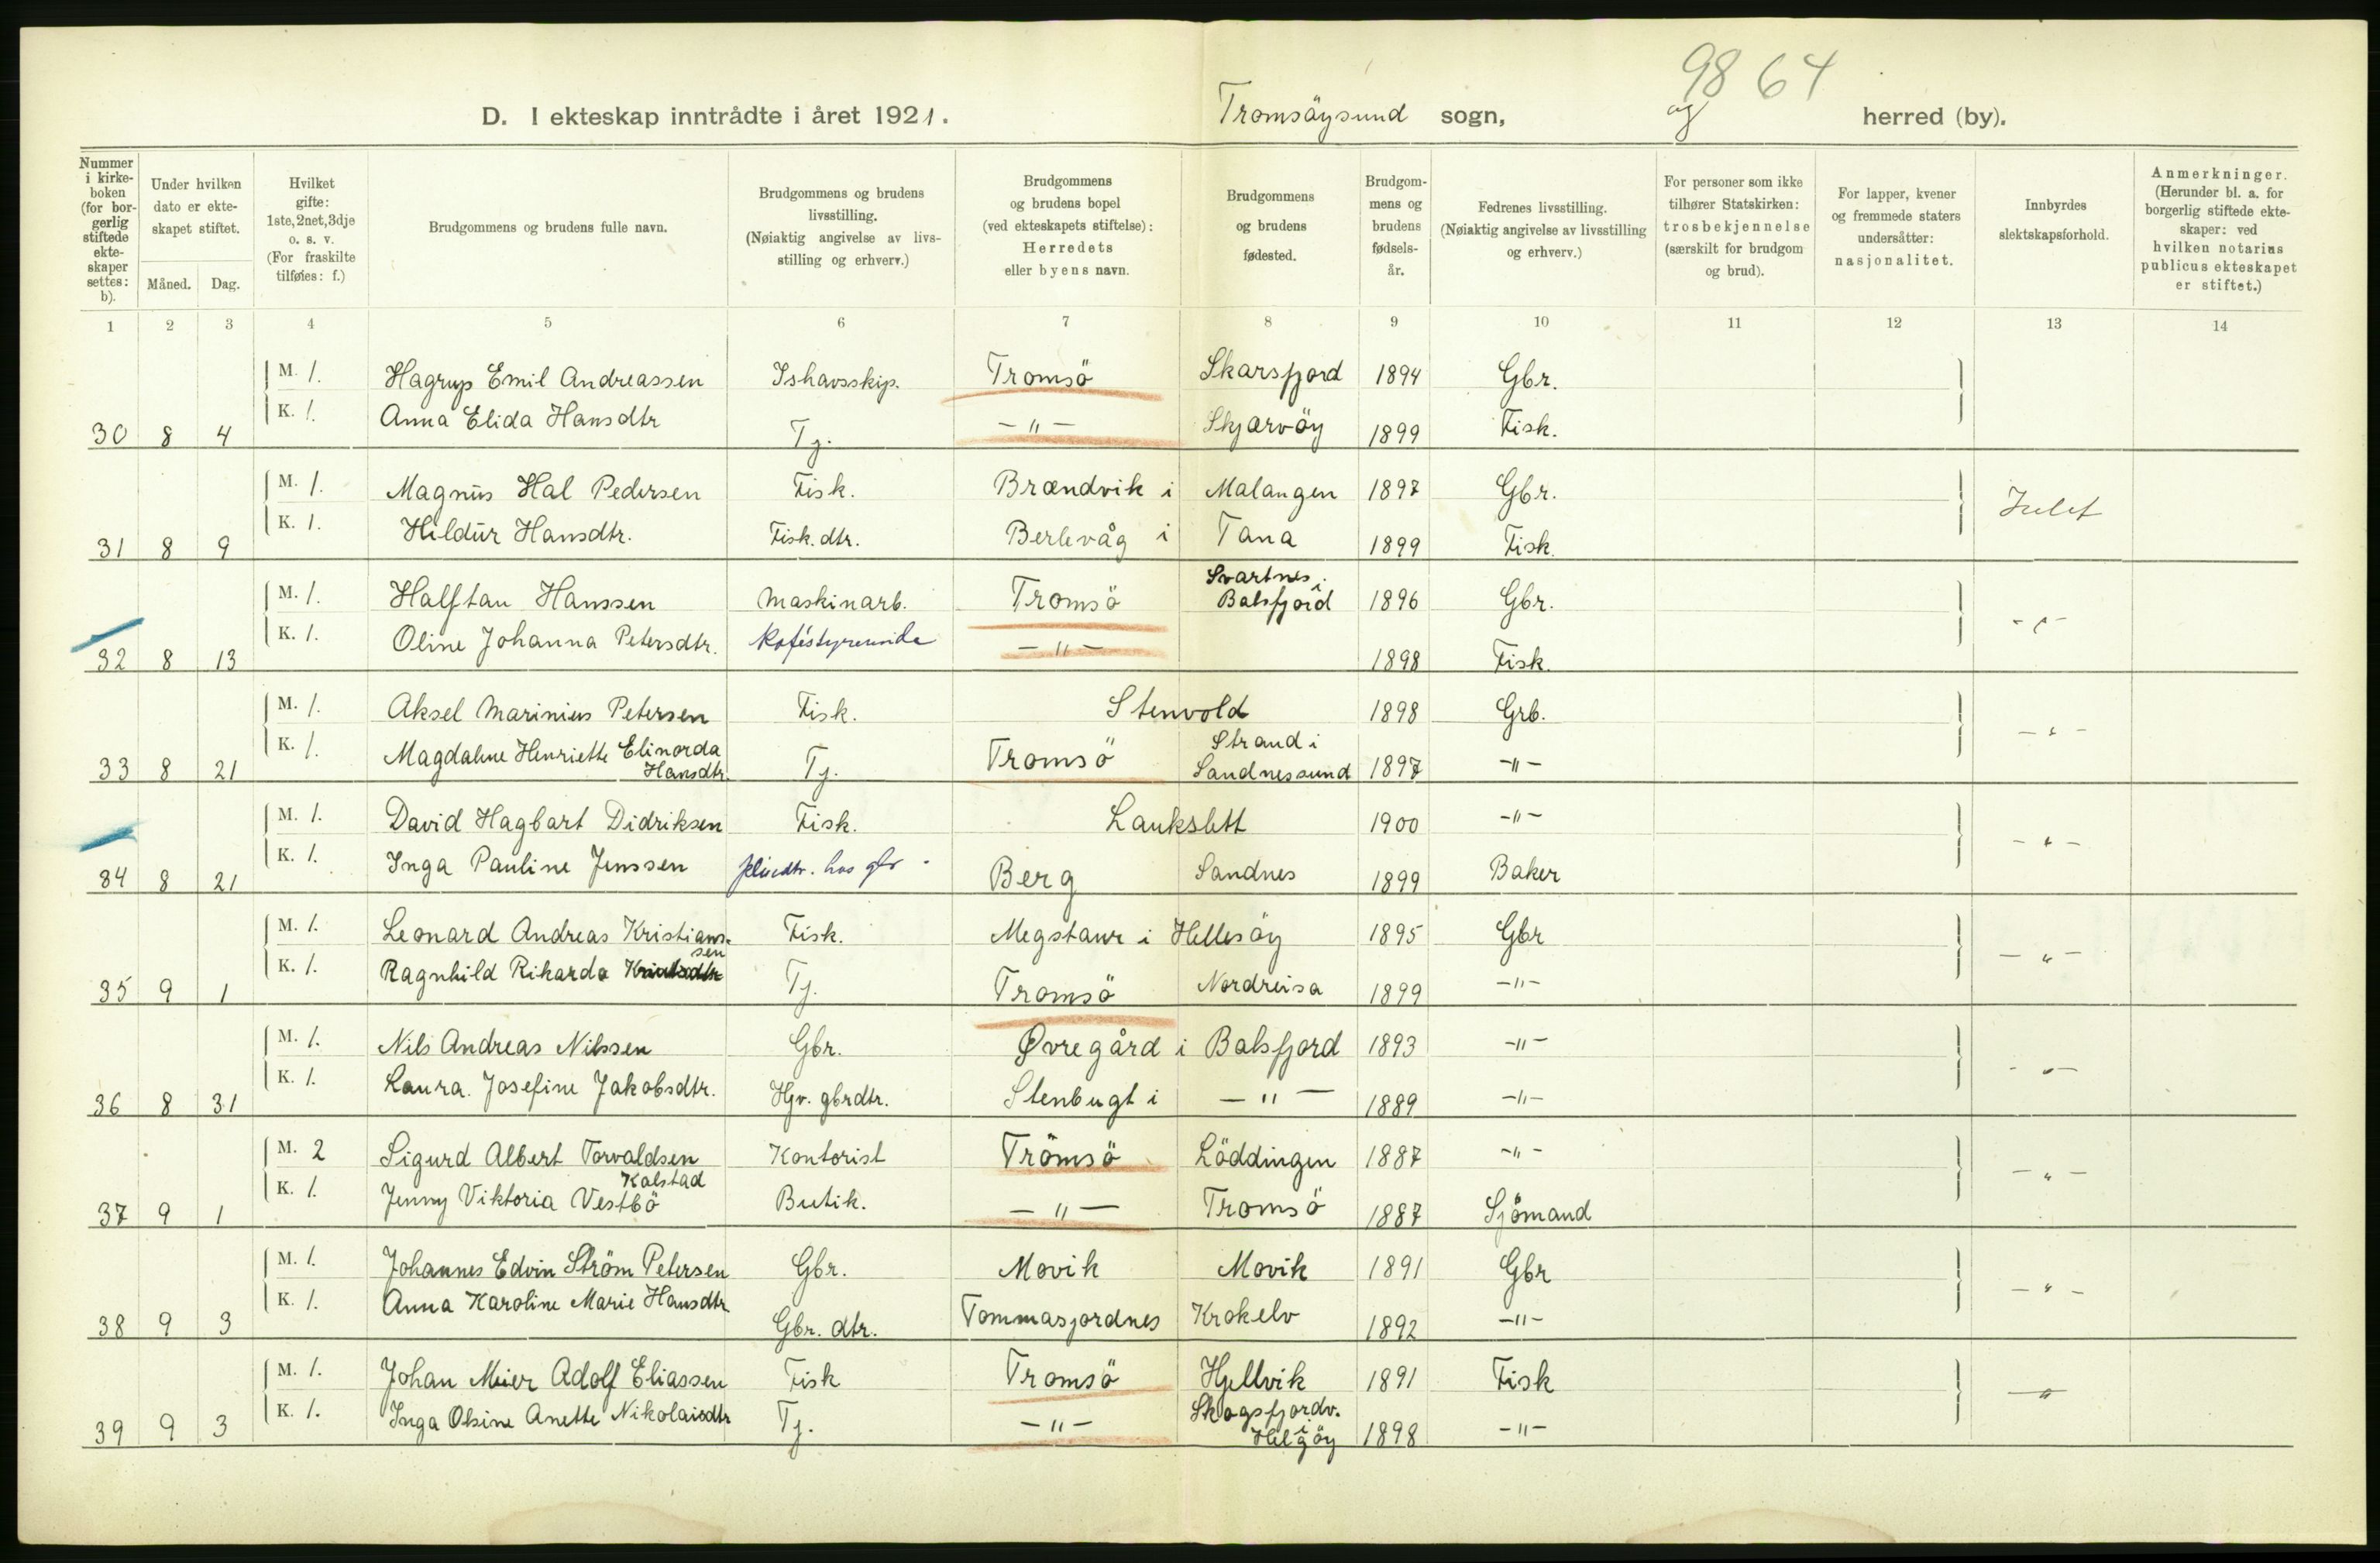 98 64
D. I ekteskap inntrådte i året 1921. Tromsöysund sogn, og herred (by).
Nummer i kirkeboken (for borgerlig stiftede ekteskaper settes: b). Under hvilken dato er ekteskapet stiftet. Måned. Dag. Hvilket gifte: 1ste, 2net, 3dje o. s. v. (For fraskilte tilføies: f.) Brudgommens og brudens fulle navn. Brudgommens og brudens livsstilling. (Nøiaktig angivelse av livsstilling og erhverv.) Brudgommens og brudens bopel (ved ekteskapets stiftelse): Herredets eller byens navn. Brudgommens og brudens fødested. Brudgommens og brudens fødselsår. Fedrenes livsstilling. (Nøiaktig angivelse av livsstilling og erhverv.) For personer som ikke tilhører Statskirken: trosbekjennelse (særskilt for brudgom og brud). For lapper, kvener og fremmede staters undersåtter: nasjonalitet. Innbyrdes slektskapsforhold. Anmerkninger. (Herunder bl. a. for borgerlig stiftede ekteskaper: ved hvilken notarius publicus ekteskapet er stiftet.)
1 2 3 4 5 6 7 8 9 10 11 12 13 14
M. 1. Hagrup Emil Andreassen Ishavsskip. Tromsö Skarsfjord 1894 Gbr.
30 8 4 K. 1. Anna Elida Hansdtr Tj. -"- Skjærvöy 1899 Fisk.
M. 1. Magnus Hal Pedersen Fisk. Brændvik i Malangen 1897 Gbr.
31 8 9 K. 1. Hildur Hansdtr. Fisk. dtr. Berlevåg i Tana 1899 Fisk.
M. 1. Halftan Hanssen Maskinarb. Tromsö Svartnes i Balsfjord 1896 Gbr.
32 8 13 K. 1. Oline Johanna Petersdtr. -"- 1898 Fisk. -"-
M. 1. Aksel Marinius Petersen Fisk. Stenvold 1898 Grb.
33 8 21 K. 1. Magdalene Henriette Elinorda Hansdtr. Tj. Tromsö Strand i Sandnessund 1897 -"- -"-
M. 1. David Hagbart Didriksen Fisk. Laukslett 1900 -"-
34 8 21 K. 1. Inga Pauline Jenssen hos gbr. Berg Sandnes 1899 Baker -"-
M. 1. Leonard Andreas Kristianssen Fisk. Megstaur i Hellesöy 1895 Gbr
35 9 1 K. 1. Ragnhild Rikarda Tj. Tromsö Nordreisa 1899 -"- -"-
M. 1. Nils Andreas Nilssen Gbr. Øvregård i Balsfjord 1893 -"-
36 8 31 K. 1. Laura. Josefine Jakobsdtr. Hjv. gbrdtr. Stenbugt i -"- 1889 -"- -"-
M. 2 Sigurd Albert Torvaldsen Kalstad Kontorist Tromsö Löddingen 1887 -"-
37 9 1 K. 1. Jenny Viktoria Vestbö Butik. -"- Tromsö 1887 Sjömand -"-
M. 1. Johannes Edvin Ström Petersen Gbr. Movik Movik 1891 Gbr
38 9 3 K. 1. Anna Karoline Marie Hansdtr Gbr. dtr. Tommasjordnes Krokelv 1892 -"- -"-
M. 1. Johan Meier Adolf Eliassen Fisk Tromsö Hjellvik 1891 Fisk
39 9 3 K. 1. Inga Olsine Anette Nikolaisdtr Tj. -"- Skogsfjordv. i Helgöy 1898 -"- -"-